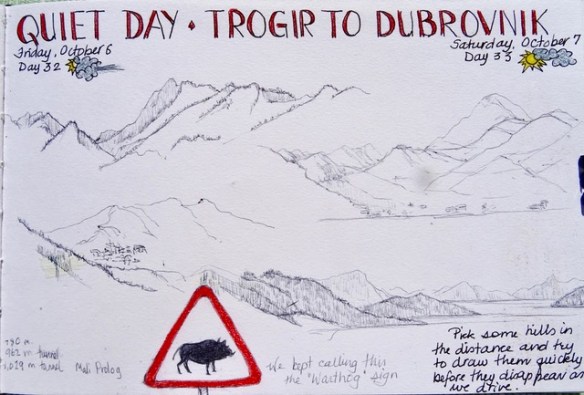 QUIET DAY • TROGIR TO DUBROVNIK
Friday, October 6
Day 32
Saturday, October 7
Day 33
962 m tunnel
Mali Prolog
We kept calling this
the "Warthog" sign
Pick some hills in
the distance and try
to draw them quickly
before they disappear as
we drive.